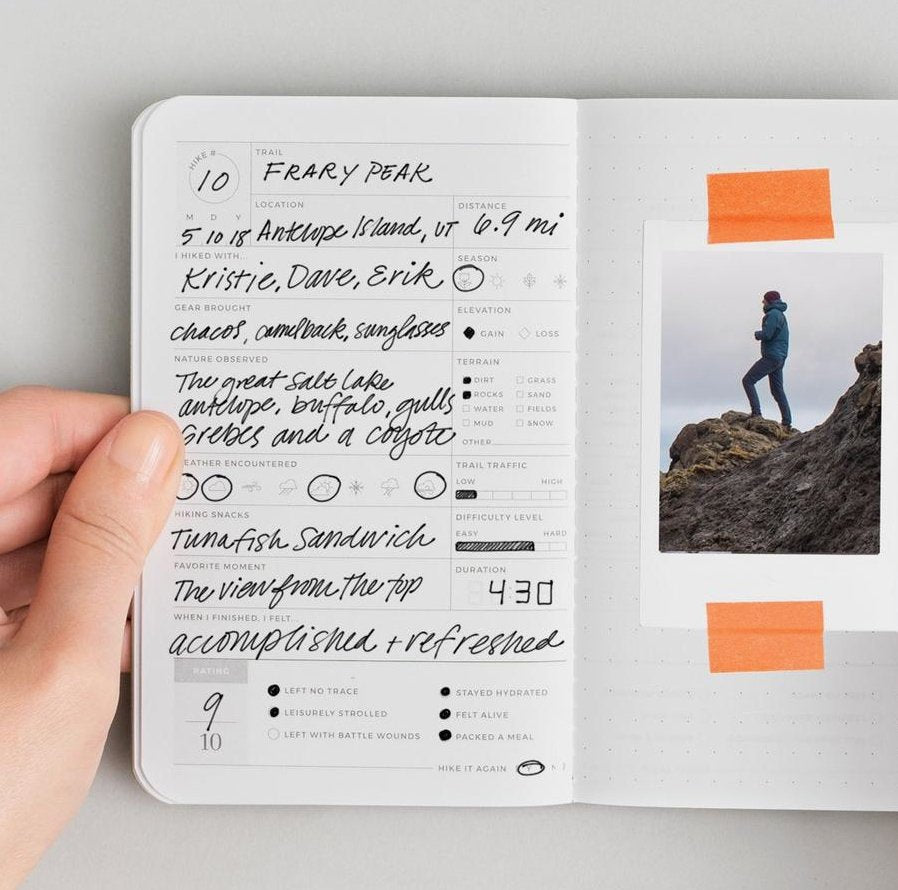 HIKE #
10
TRAIL
FRARY PEAK
M D Y
5 10 18
LOCATION
Antelope Island, UT
DISTANCE
6.9 mi
I HIKED WITH...
Kristie, Dave, Erik
SEASON
GEAR BROUGHT
chacos, camelback, sunglasses
ELEVATION
GAIN LOSS
NATURE OBSERVED
The great Salt Lake
antelope, buffalo, gulls
Grebes and a coyote
TERRAIN
DIRT GRASS
ROCKS SAND
WATER FIELDS
MUD SNOW
OTHER
EATHER ENCOUNTERED
TRAIL TRAFFIC
LOW HIGH
HIKING SNACKS
Tunafish Sandwich
DIFFICULTY LEVEL
EASY HARD
FAVORITE MOMENT
The view from the top
DURATION
430
WHEN I FINISHED, I FELT...
accomplished + refreshed
RATING
9
10
LEFT NO TRACE
LEISURELY STROLLED
LEFT WITH BATTLE WOUNDS
STAYED HYDRATED
FELT ALIVE
PACKED A MEAL
HIKE IT AGAIN Y N